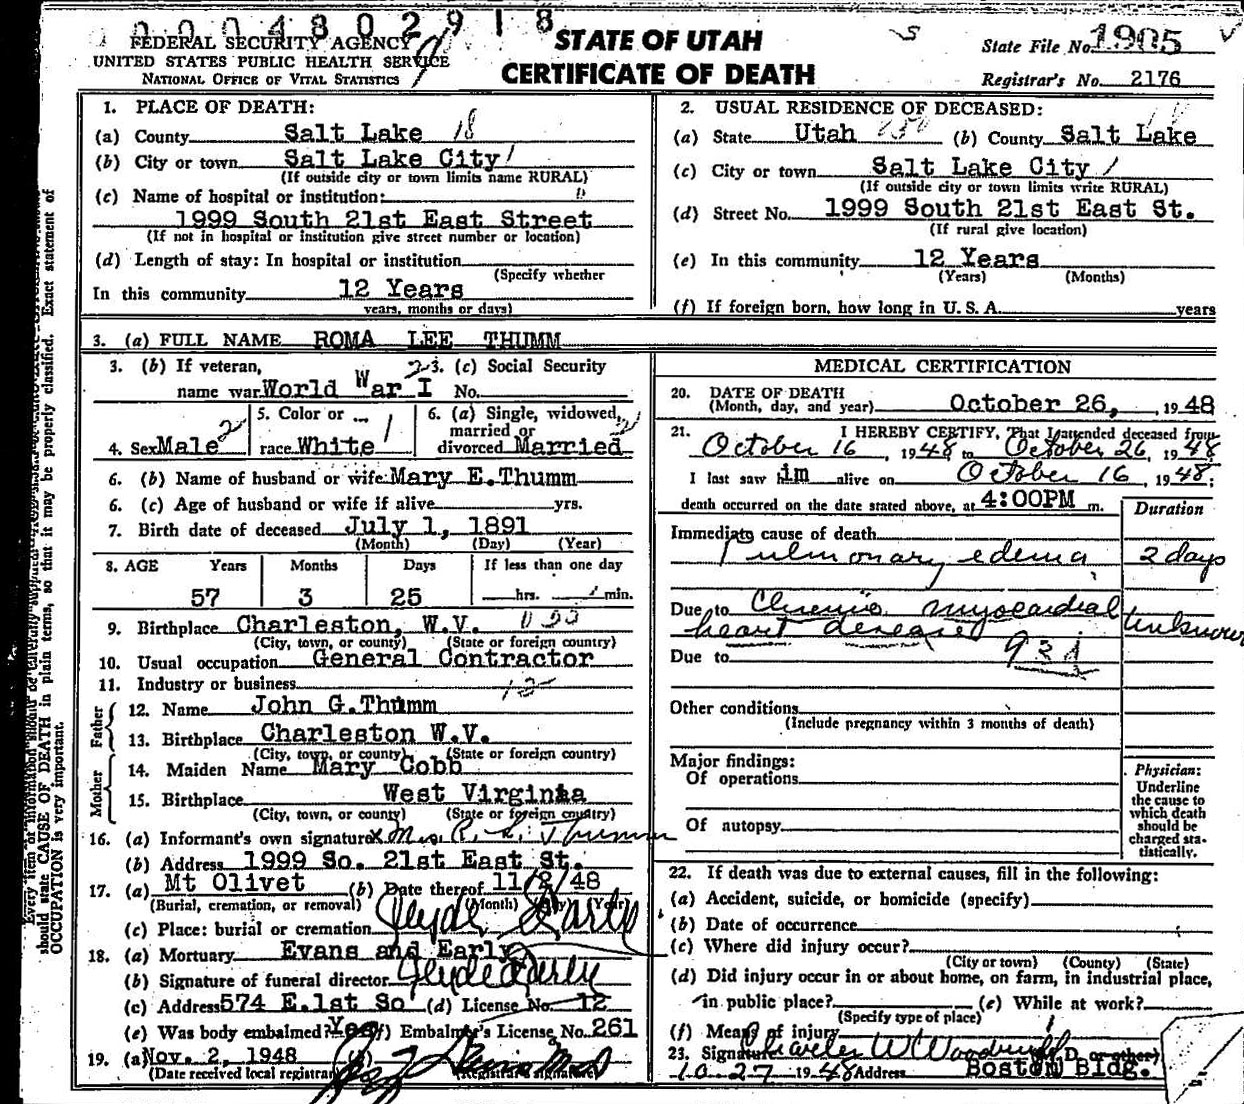 0004802918
FEDERAL SECURITY AGENCY
UNITED STATES PUBLIC HEALTH SERVICE
NATIONAL OFFICE OF VITAL STATISTICS
STATE OF UTAH
CERTIFICATE OF DEATH
S
State File No. 1905
Registrar's No. 2176
1. PLACE OF DEATH:
(a) County Salt Lake 18
(b) City or town Salt Lake City /
(If outside city or town limits name RURAL)
(c) Name of hospital or institution:
1999 South 21st East Street
(If not in hospital or institution give street number or location)
(d) Length of stay: In hospital or institution
(Specify whether
In this community 12 Years
years, months or days)
2. USUAL RESIDENCE OF DECEASED:
(a) State Utah (b) County Salt Lake
(c) City or town Salt Lake City /
(If outside city or town limits write RURAL)
(d) Street No. 1999 South 21st East St.
(If rural give location)
(e) In this community 12 Years
(Years) (Months)
(f) If foreign born, how long in U. S. A. years
3. (a) FULL NAME ROMA LEE THUMM
3. (b) If veteran, name war World War I
3. (c) Social Security No.
4. Sex Male 2
5. Color or race White /
6. (a) Single, widowed, married or divorced Married 2
6. (b) Name of husband or wife Mary E. Thumm
6. (c) Age of husband or wife if alive yrs.
7. Birth date of deceased July 1, 1891
(Month) (Day) (Year)
8. AGE Years Months Days If less than one day
57 3 25 hrs. min.
9. Birthplace Charleston, W.V.
(City, town, or county) (State or foreign country)
10. Usual occupation General Contractor
11. Industry or business
Father
12. Name John G.Thumm
13. Birthplace Charleston W.V.
(City, town, or county) (State or foreign country)
Mother
14. Maiden Name Mary Cobb
15. Birthplace West Virginia
(City, town, or county) (State or foreign country)
16. (a) Informant's own signature x Mrs. R. L. Thumm
(b) Address 1999 So. 21st East St.
17. (a) Mt Olivet (b) Date thereof 11/2/48
(Burial, cremation, or removal) (Month) (Day) (Year)
(c) Place: burial or cremation Clyde Early
18. (a) Mortuary Evans and Early
(b) Signature of funeral director Clyde Early
(c) Address 574 E.1st So. (d) License No. 12
(e) Was body embalmed? Yes (f) Embalmer's License No. 261
19. (a) Nov. 2, 1948 (b)
(Date received local registrar) (Registrar's signature)
MEDICAL CERTIFICATION
20. DATE OF DEATH
(Month, day, and year) October 26, , 19 48
21. I HEREBY CERTIFY, That I attended deceased from
October 16 , 1948 to October 26, 1948
I last saw h im alive on October 16 , 1948;
death occurred on the date stated above, at 4:00PM m.
Duration
Immediate cause of death
Pulmonary edema 2 days
Due to Chronic myocardial Unknown
heart disease
Due to 93d
Other conditions
(Include pregnancy within 3 months of death)
Major findings:
Of operations
Of autopsy
Physician:
Underline
the cause to
which death
should be
charged sta-
tistically.
22. If death was due to external causes, fill in the following:
(a) Accident, suicide, or homicide (specify)
(b) Date of occurrence
(c) Where did injury occur?
(City or town) (County) (State)
(d) Did injury occur in or about home, on farm, in industrial place,
in public place? (e) While at work?
(Specify type of place)
(f) Means of injury
23. Signature Charles W Woodruff (M. D. or other)
10-27 1948 Address Boston Bldg.
should state CAUSE OF DEATH in plain terms, so that it may be properly classified. Exact statement of
OCCUPATION is very important.